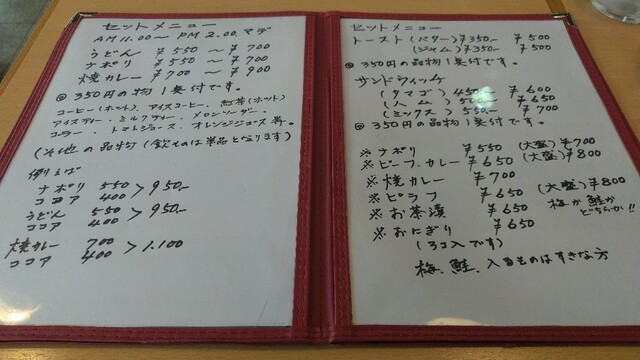 セットメニュー
AM 11.00～ PM 2.00.マデ
うどん ￥550 ～ ￥700
ナポリ ￥550 ～ ￥700
焼カレー ￥700 ～ ￥900
@ 350円の品物1実付です。
コーヒー(ホット)、アイスコーヒー、紅茶(ホット)
アイスティー、ミルクティー、メロンソーダー、
コーラー、トマトジュース、オレンジジュース等。
(其他の品物(飲ものは単品となります)
例えば
ナポリ 550 > 950.-
ココア 400
うどん 550 > 950.-
ココア 400
焼カレー 700 > 1.100
ココア 400
セットメニュー
トースト (バター) ￥350.- ￥500
(ジャム) ￥350.- ￥500
@ 350円の品物1実付です。
サンドウィッチ
(タマゴ) 450 ￥600
(ハム) ￥650
(ミックス) 550.- ￥700
@ 350円の品物1実付です。
※ナポリ ￥550 (大盛)￥700
※ビーフ.カレー ￥650 (大盛)￥800
※焼カレー ￥700
※ピラフ ￥650 (大盛)￥800
※お茶漬 ￥650 梅か鮭か どちらか!!
※おにぎり ￥650
(3コ入です)
梅、鮭、入るものはすきな方